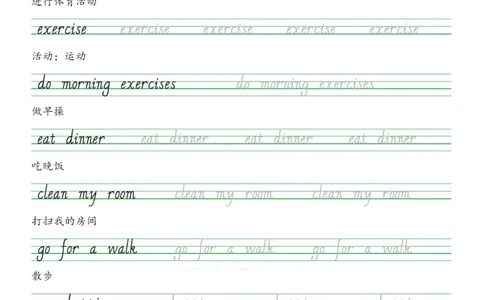 进行体育活动
exercise exercise exercise exercise exercise
活动；运动
do morning exercises do morning exercises
做早操
eat dinner eat dinner eat dinner eat dinner
吃晚饭
clean my room clean my room clean my room
打扫我的房间
go for a walk go for a walk go for a walk
散步